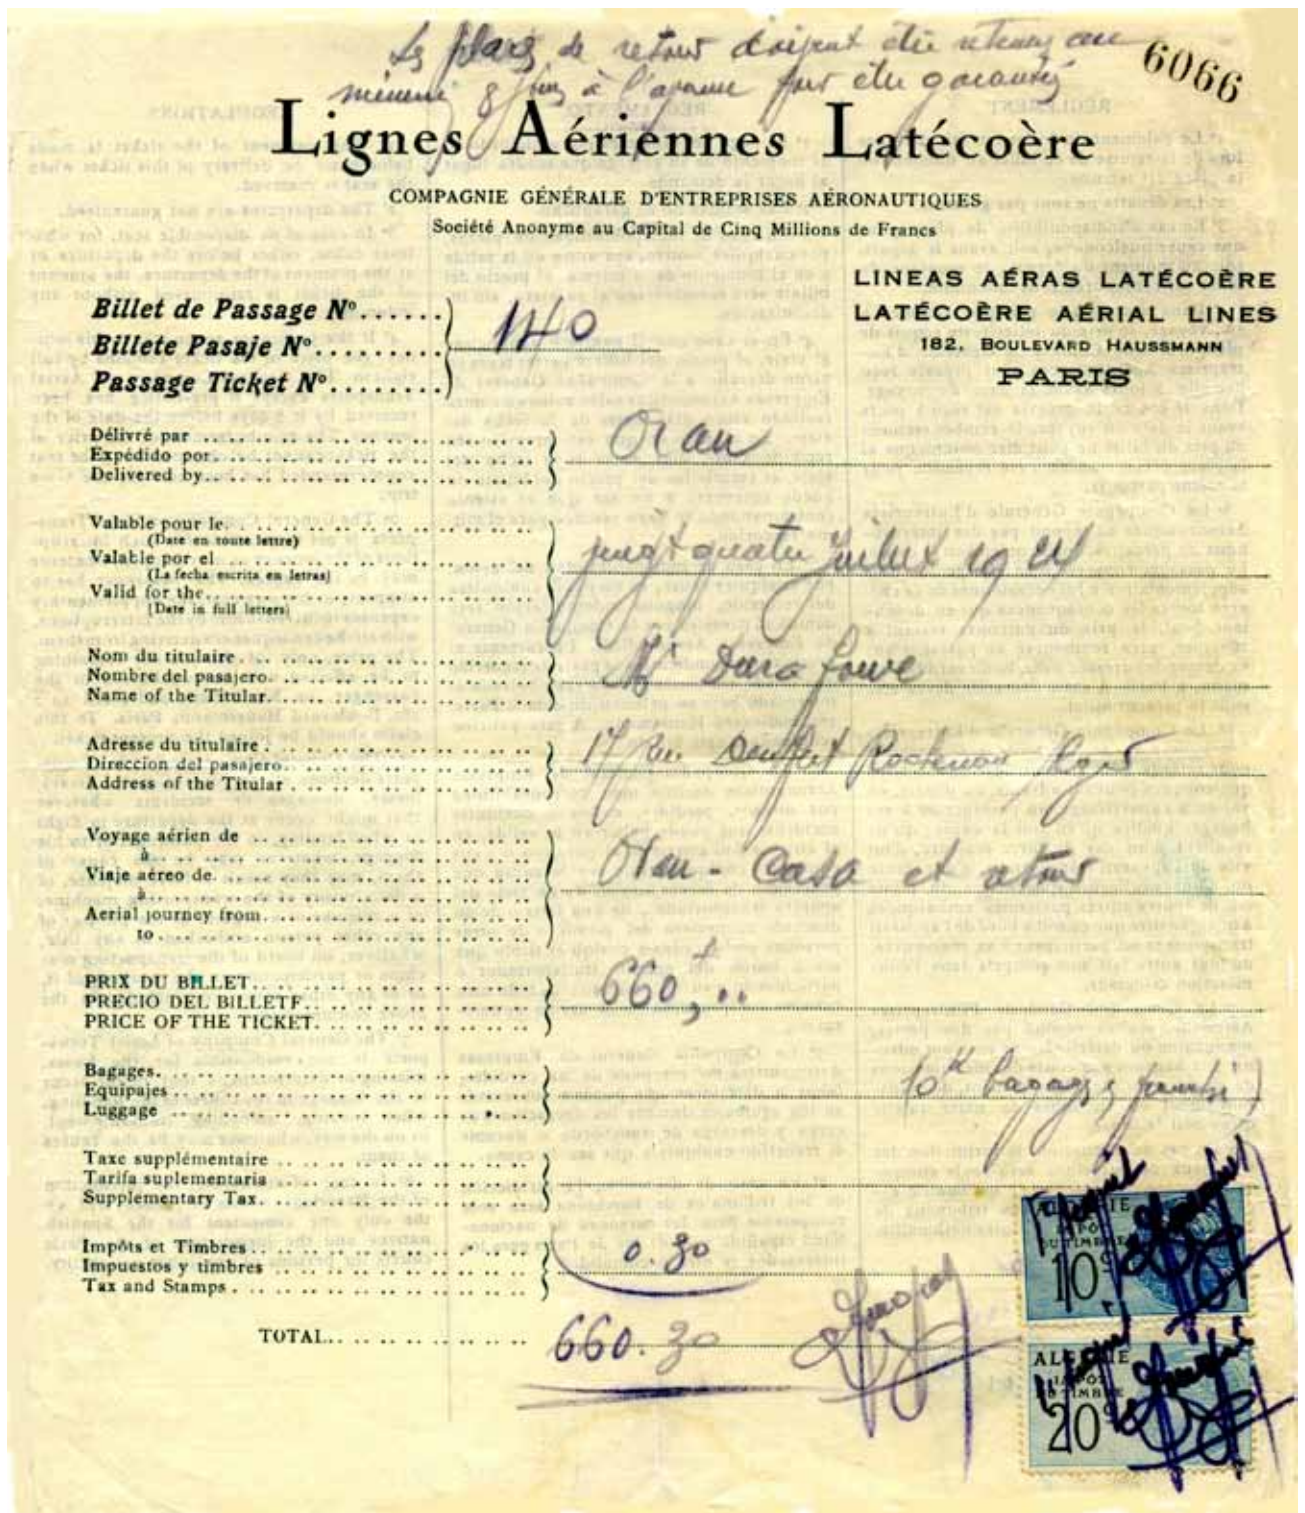 Les places de retour doivent être retenues au
minimum 8 jours à l'avance pour être garanties
6066
Lignes Aériennes Latécoère
COMPAGNIE GÉNÉRALE D'ENTREPRISES AÉRONAUTIQUES
Société Anonyme au Capital de Cinq Millions de Francs
LINEAS AÉRAS LATÉCOÈRE
LATÉCOÈRE AÉRIAL LINES
182, BOULEVARD HAUSSMANN
PARIS
Billet de Passage Nº......
Billete Pasaje Nº.........
Passage Ticket Nº........
140
Délivré par
Expédido por
Delivered by
Oran
Valable pour le
(Date en toute lettre)
Valable por el
(La fecha escrita en letras)
Valid for the
(Date in full letters)
vingt quatre juillet 1924
Nom du titulaire
Nombre del pasajero
Name of the Titular
Mr Durafour
Adresse du titulaire
Direccion del pasajero
Address of the Titular
17 Rue Denfert Rochereau Alger
Voyage aérien de
à
Viaje aéreo de
à
Aerial journey from
to
Oran - Casa et retour
PRIX DU BILLET
PRECIO DEL BILLETE
PRICE OF THE TICKET
660,..
Bagages
Equipajes
Luggage
10k bagages
Taxe supplémentaire
Tarifa suplementaria
Supplementary Tax
Impôts et Timbres
Impuestos y timbres
Tax and Stamps
0.30
TOTAL
660.30
ALGÉRIE
IMPÔT
DU TIMBRE
10c
ALGÉRIE
IMPÔT
DU TIMBRE
20c